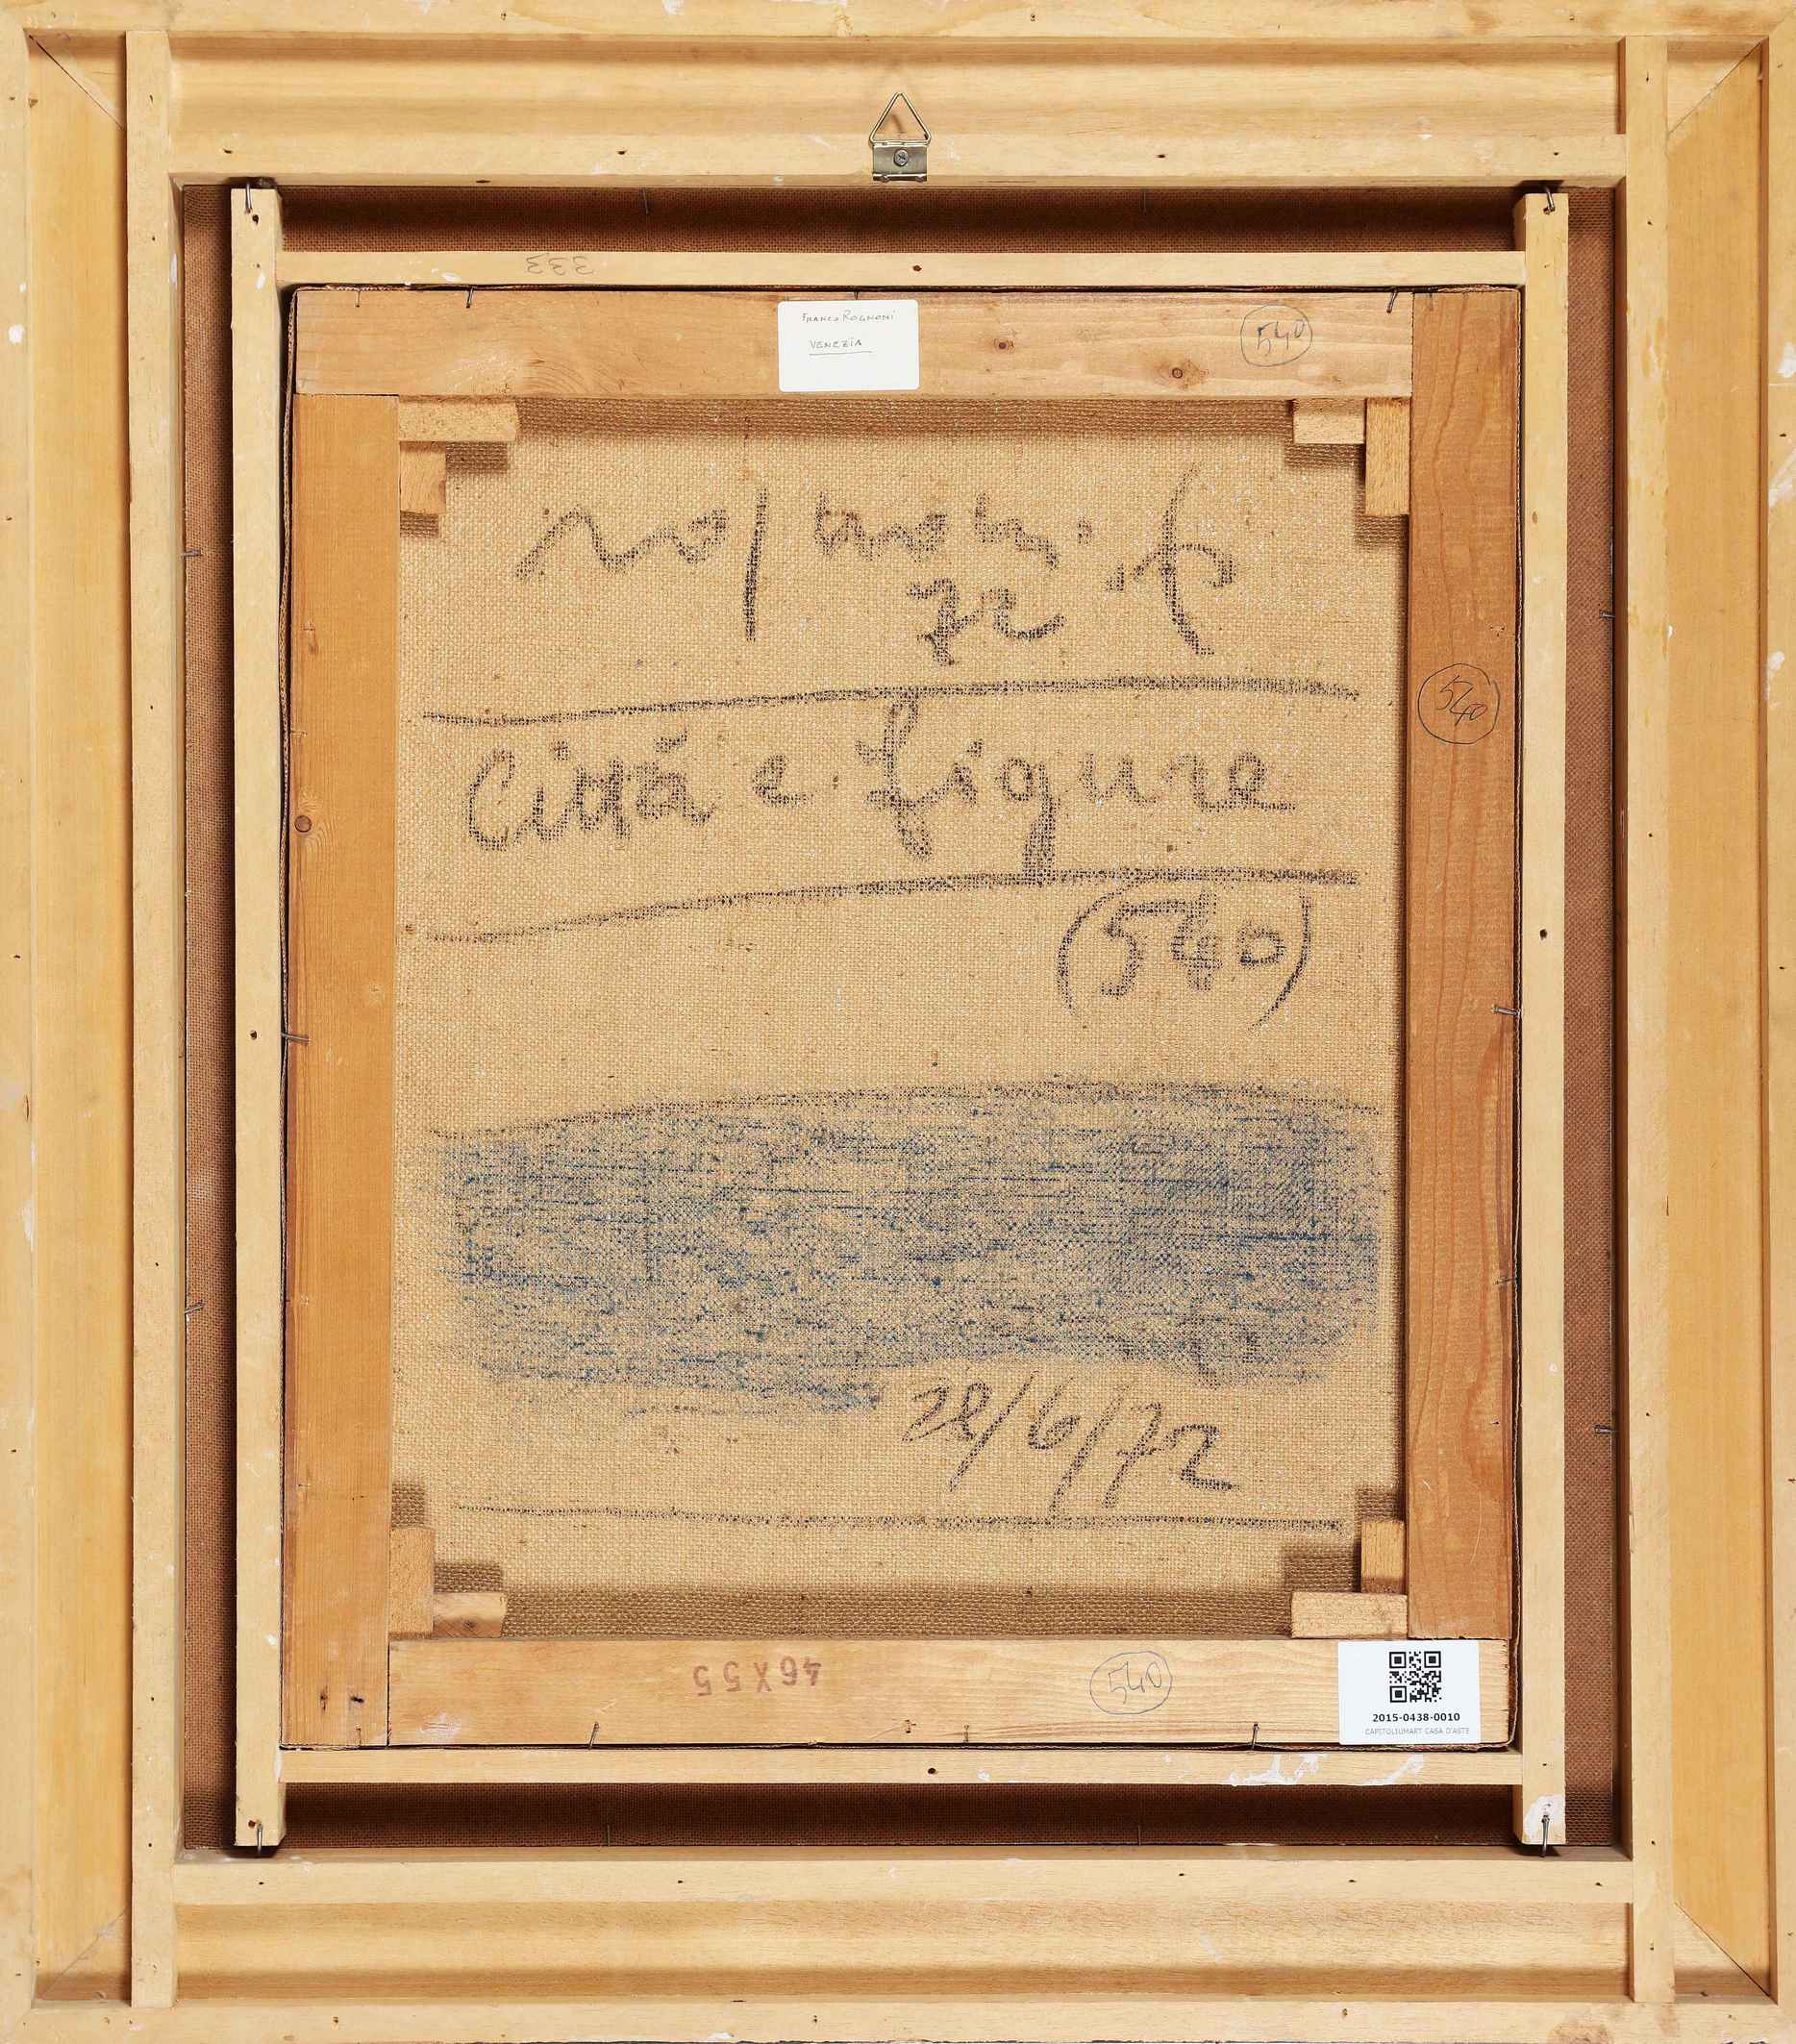 333
Franco Rognoni
VENEZIA
540
rognoni. f
72
Città e figure
540
(540)
28/6/72
46X55
540
2015-0438-0010
CAPITOLIUMART CASA D'ASTE